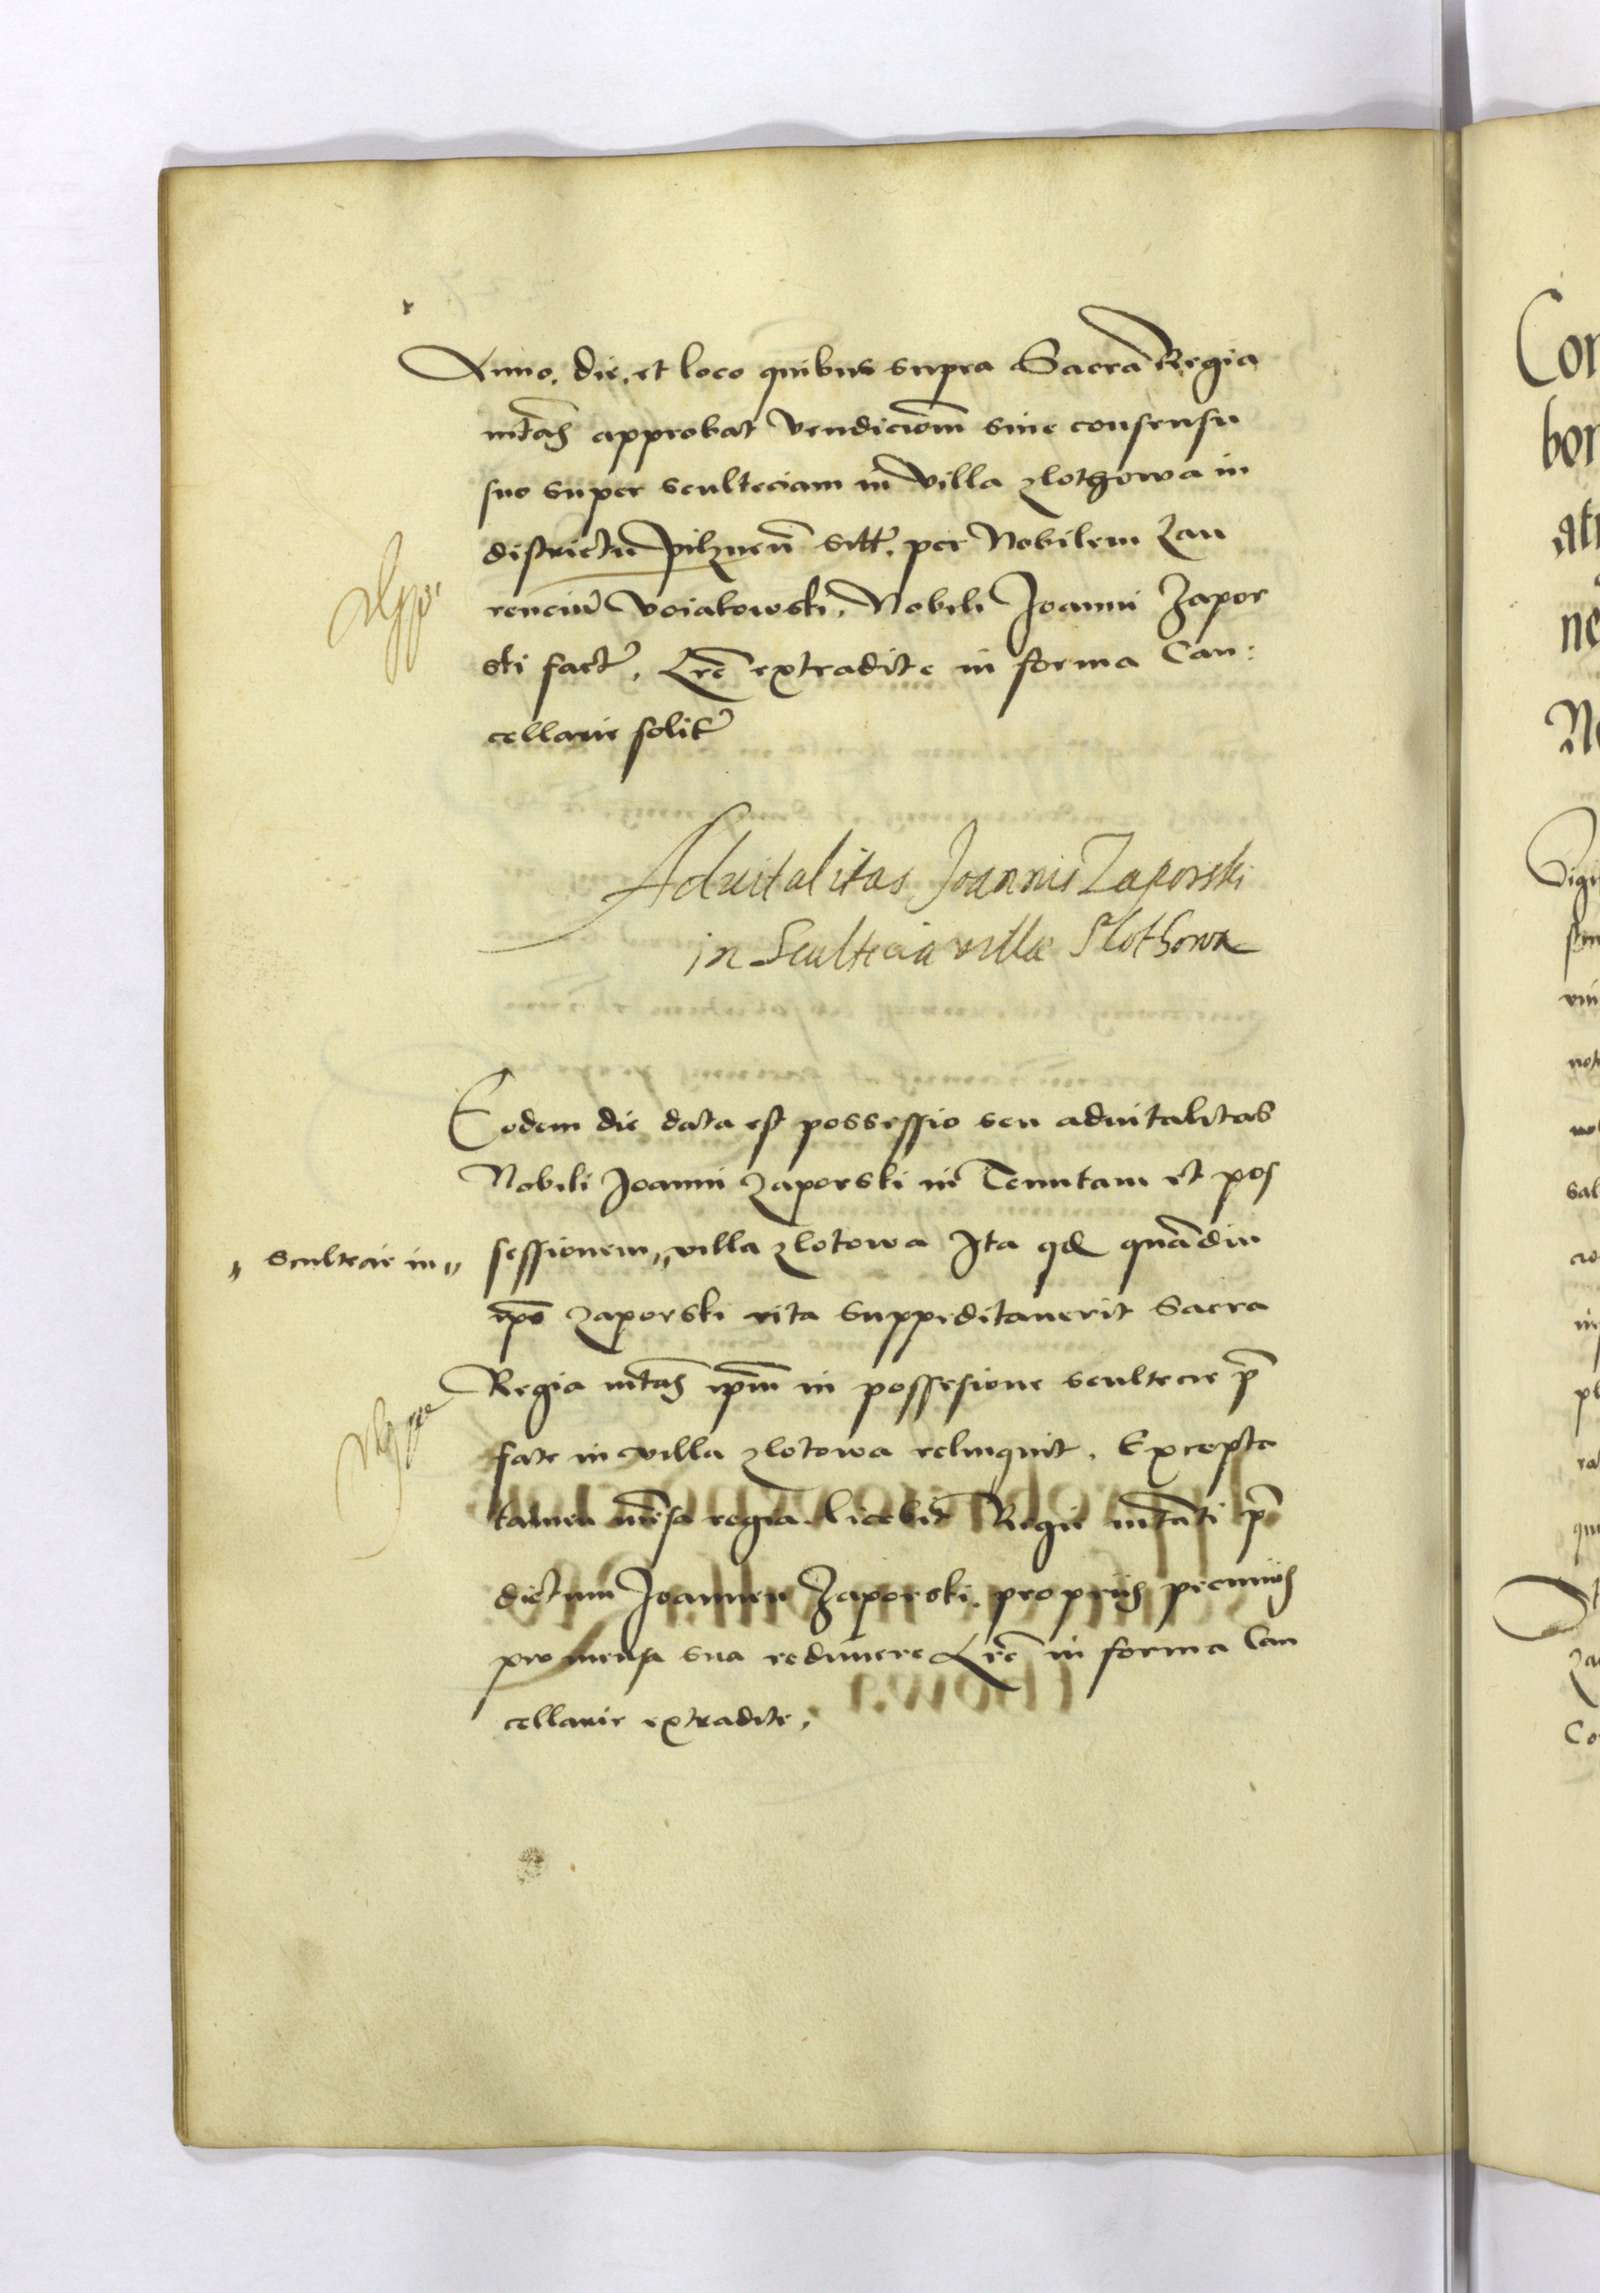 Anno, die, et loco quibus supra Sacra Regia
mtas approbat vendicionem sine consensu
suo super sculteciam in villa zlothowa in
districtu pilznen sitt, per Nobilem Lau
rencium voiakowski, Nobili Joanni Zapor
ski fact, Lre extradite in forma Can:
cellarie solit
Advitalitas Joannis Zaporski
in Scultecia villae Slothowa
Eodem die data est possessio seu advitalitas
Nobili Joanni Zaporski in Tenutam et pos
„ scultecie in „ sessionem „ villa zlotowa Ita qd quamdiu
ipse zaporski vita suppeditaverit Sacra
Regia mtas ipm in possesione scultecie p
fate in villa zlotowa relinquit. Excepta
tamen mensa regia. licebit Regie mtati p
dictum Joannen Zaporski, propriis pecuniis
pro mensa sua redimere Lre in forma Can
cellarie extradite,